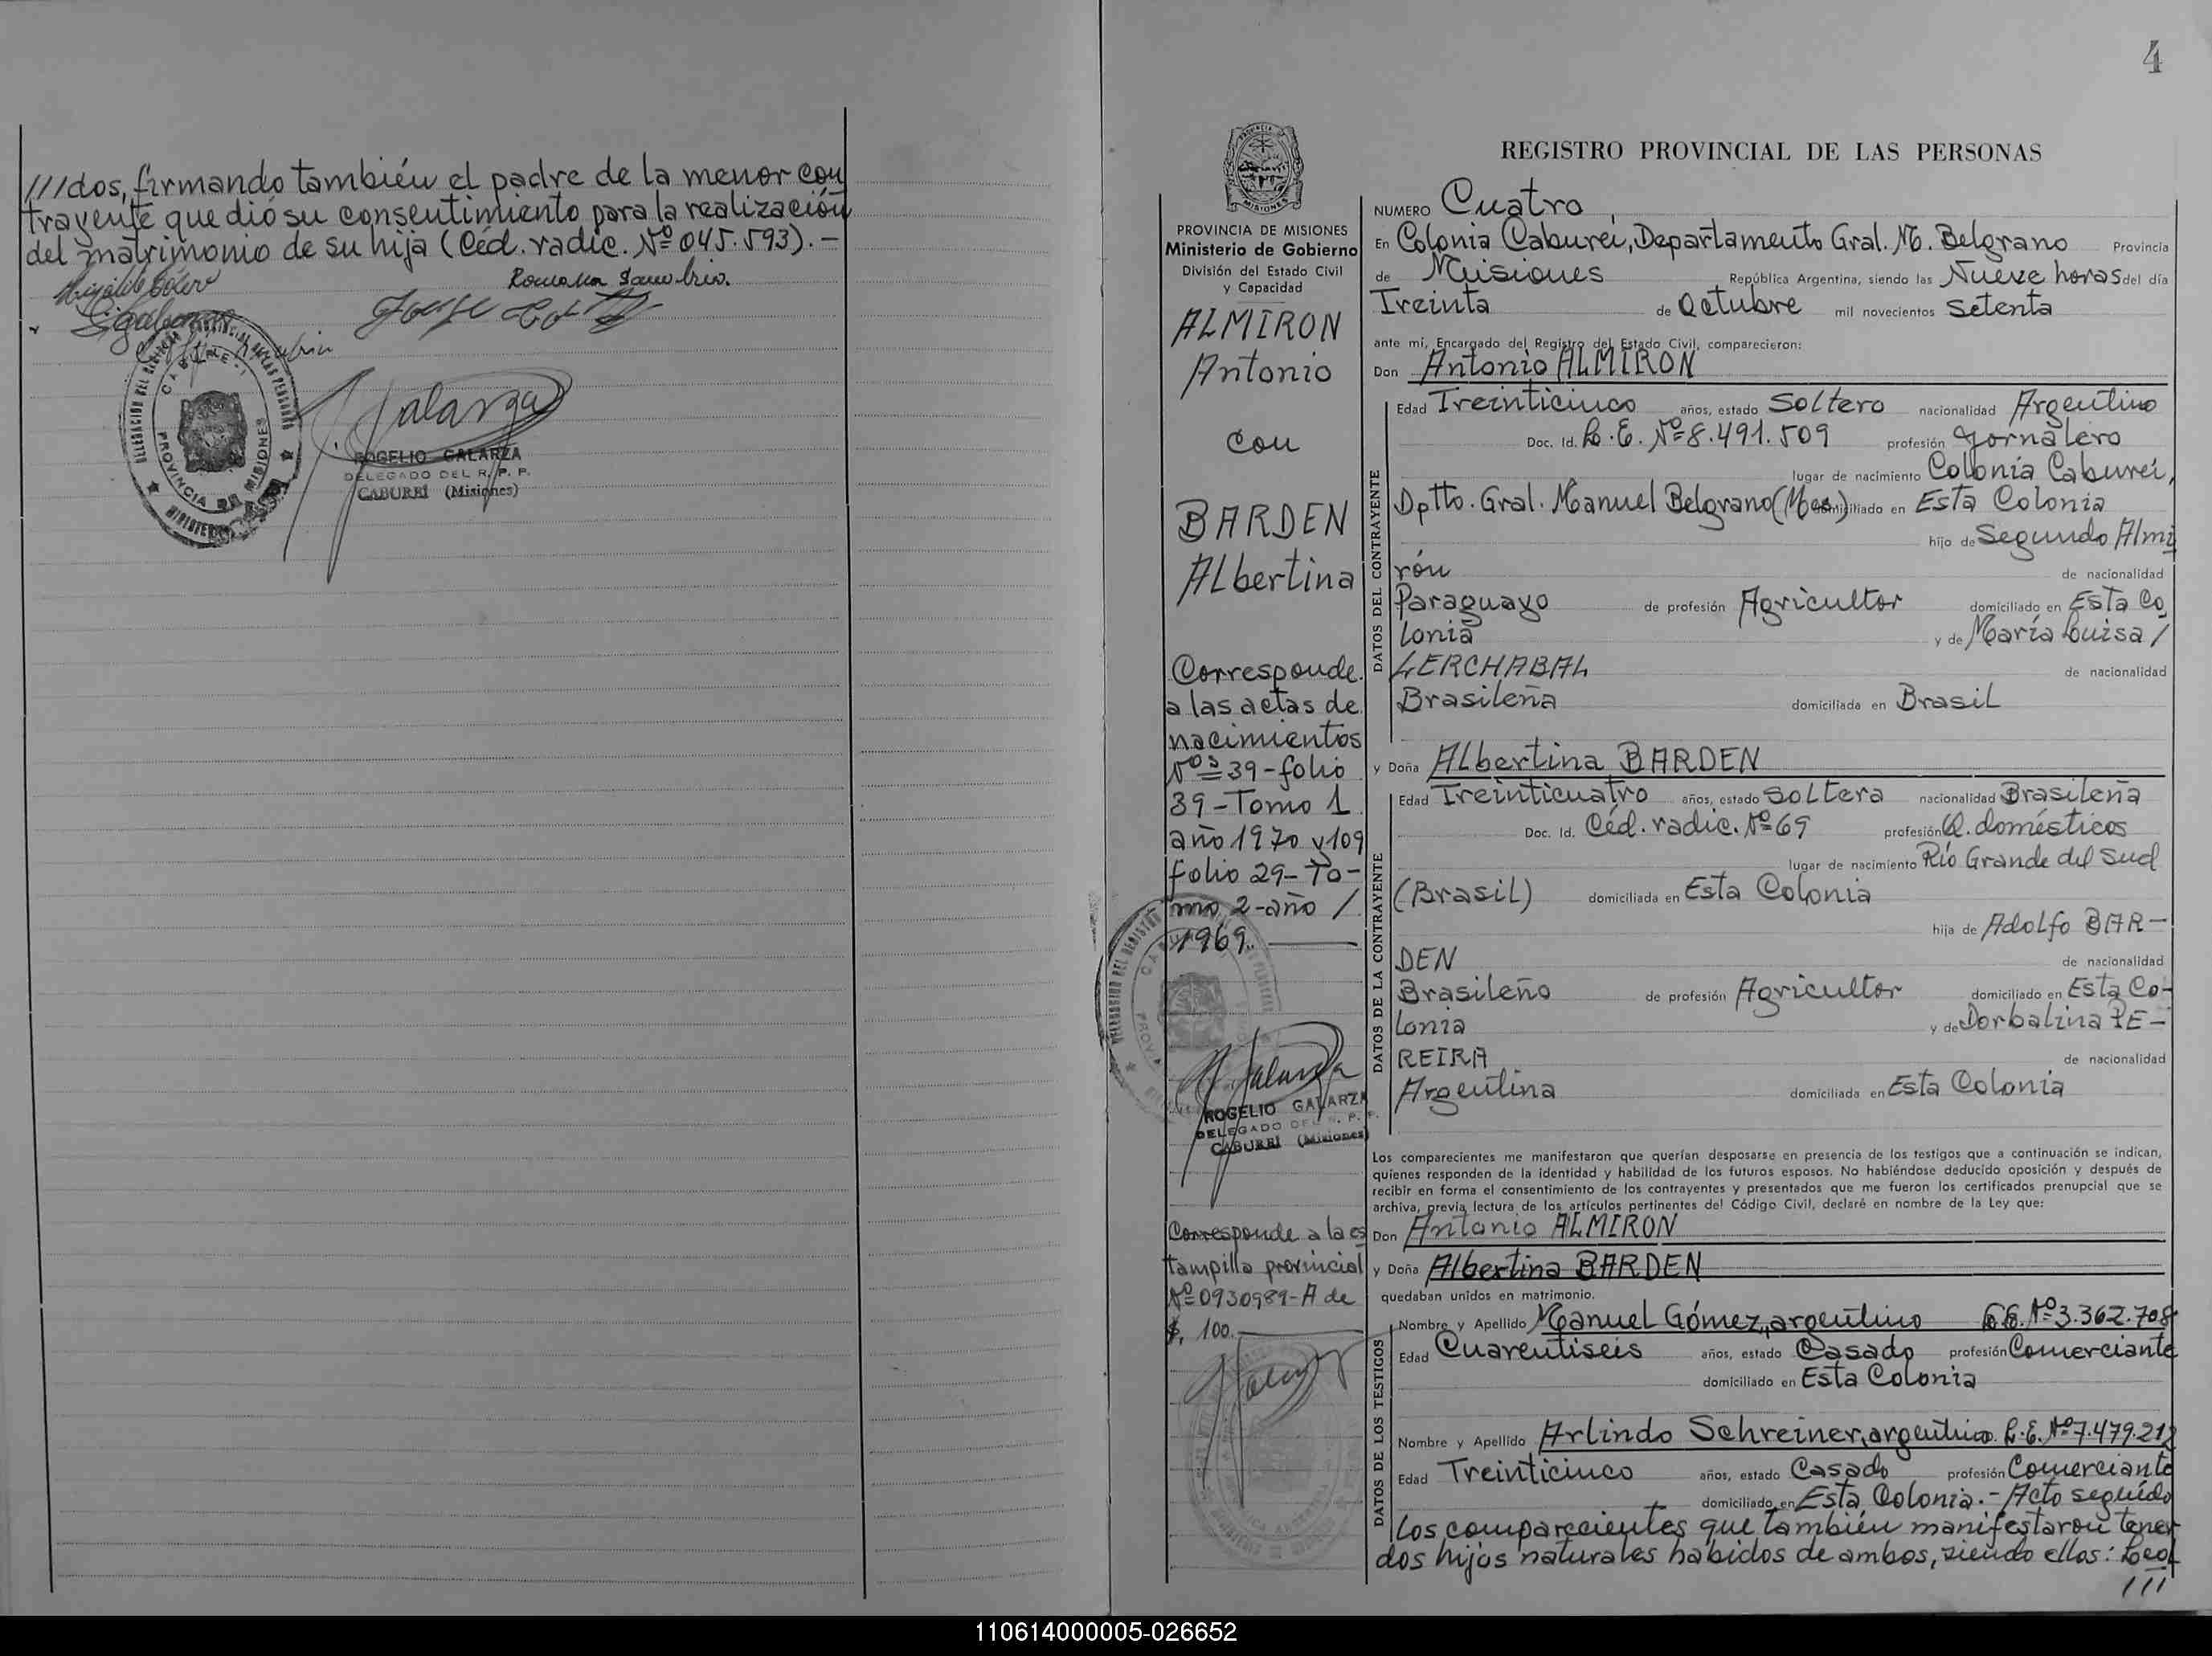 ///dos, firmando también el padre de la menor con
trayente que dió su consentimiento para la realización
del matrimonio de su hija (Céd. radic. Nº 045.593). -
ROGELIO GALARZA
DELEGADO DEL R. P. P.
CABUREÍ (Misiones)
4
REGISTRO PROVINCIAL DE LAS PERSONAS
PROVINCIA DE MISIONES
Ministerio de Gobierno
División del Estado Civil
y Capacidad
ALMIRON
Antonio
con
BARDEN
Albertina
Corresponde
a las actas de
nacimientos
Nos 39-folio
39-Tomo 1
año 1970 y 109
folio 29-To-
mo 2-año /
1969.
ROGELIO GALARZA
DELEGADO DEL R. P. P.
CABUREÍ (Misiones)
Corresponde a la es
tampilla provincial
Nº 0930989-A de
$. 100.
NUMERO Cuatro
En Colonia Caburei, Departamento Gral. M. Belgrano Provincia
de Misiones República Argentina, siendo las Nueve horas del día
Treinta de Octubre mil novecientos Setenta
ante mí, Encargado del Registro del Estado Civil, comparecieron:
Don Antonio ALMIRON
DATOS DEL CONTRAYENTE
Edad Treinticinco años, estado Soltero nacionalidad Argentino
Doc. Id. L.E. Nº 8.491.509 profesión Jornalero
lugar de nacimiento Colonia Caburei,
Dptto. Gral. Manuel Belgrano (Mnes) domiciliado en Esta Colonia
hijo de Segundo Almi
rón de nacionalidad
Paraguayo de profesión Agricultor domiciliado en Esta Co
lonia y de María Luisa /
LERCHABAL de nacionalidad
Brasileña domiciliada en Brasil
y Doña Albertina BARDEN
DATOS DE LA CONTRAYENTE
Edad Treinticuatro años, estado Soltera nacionalidad Brasileña
Doc. Id. Céd. radic. Nº 69 profesión Q. domésticos
lugar de nacimiento Río Grande del Sud
(Brasil) domiciliada en Esta Colonia
hija de Adolfo BAR-
DEN de nacionalidad
Brasileño de profesión Agricultor domiciliado en Esta Co-
lonia y de Dorbalina PE-
REIRA de nacionalidad
Argentina domiciliada en Esta Colonia
Los comparecientes me manifestaron que querían desposarse en presencia de los testigos que a continuación se indican,
quienes responden de la identidad y habilidad de los futuros esposos. No habiéndose deducido oposición y después de
recibir en forma el consentimiento de los contrayentes y presentados que me fueron los certificados prenupcial que se
archiva, previa lectura de los artículos pertinentes del Código Civil, declaré en nombre de la Ley que:
Don Antonio ALMIRON
y Doña Albertina BARDEN
quedaban unidos en matrimonio.
DATOS DE LOS TESTIGOS
Nombre y Apellido Manuel Gómez, argentino L.E. Nº 3.362.708
Edad Cuarentiseis años, estado Casado profesión Comerciante
domiciliado en Esta Colonia
Nombre y Apellido Arlindo Schreiner, argentino. L.E. Nº 7.479.212
Edad Treinticinco años, estado Casado profesión Comerciante
domiciliado en Esta Colonia. - Acto seguido
los comparecientes que también manifestaron tener
dos hijos naturales habidos de ambos, siendo ellos:
///
110614000005-026652